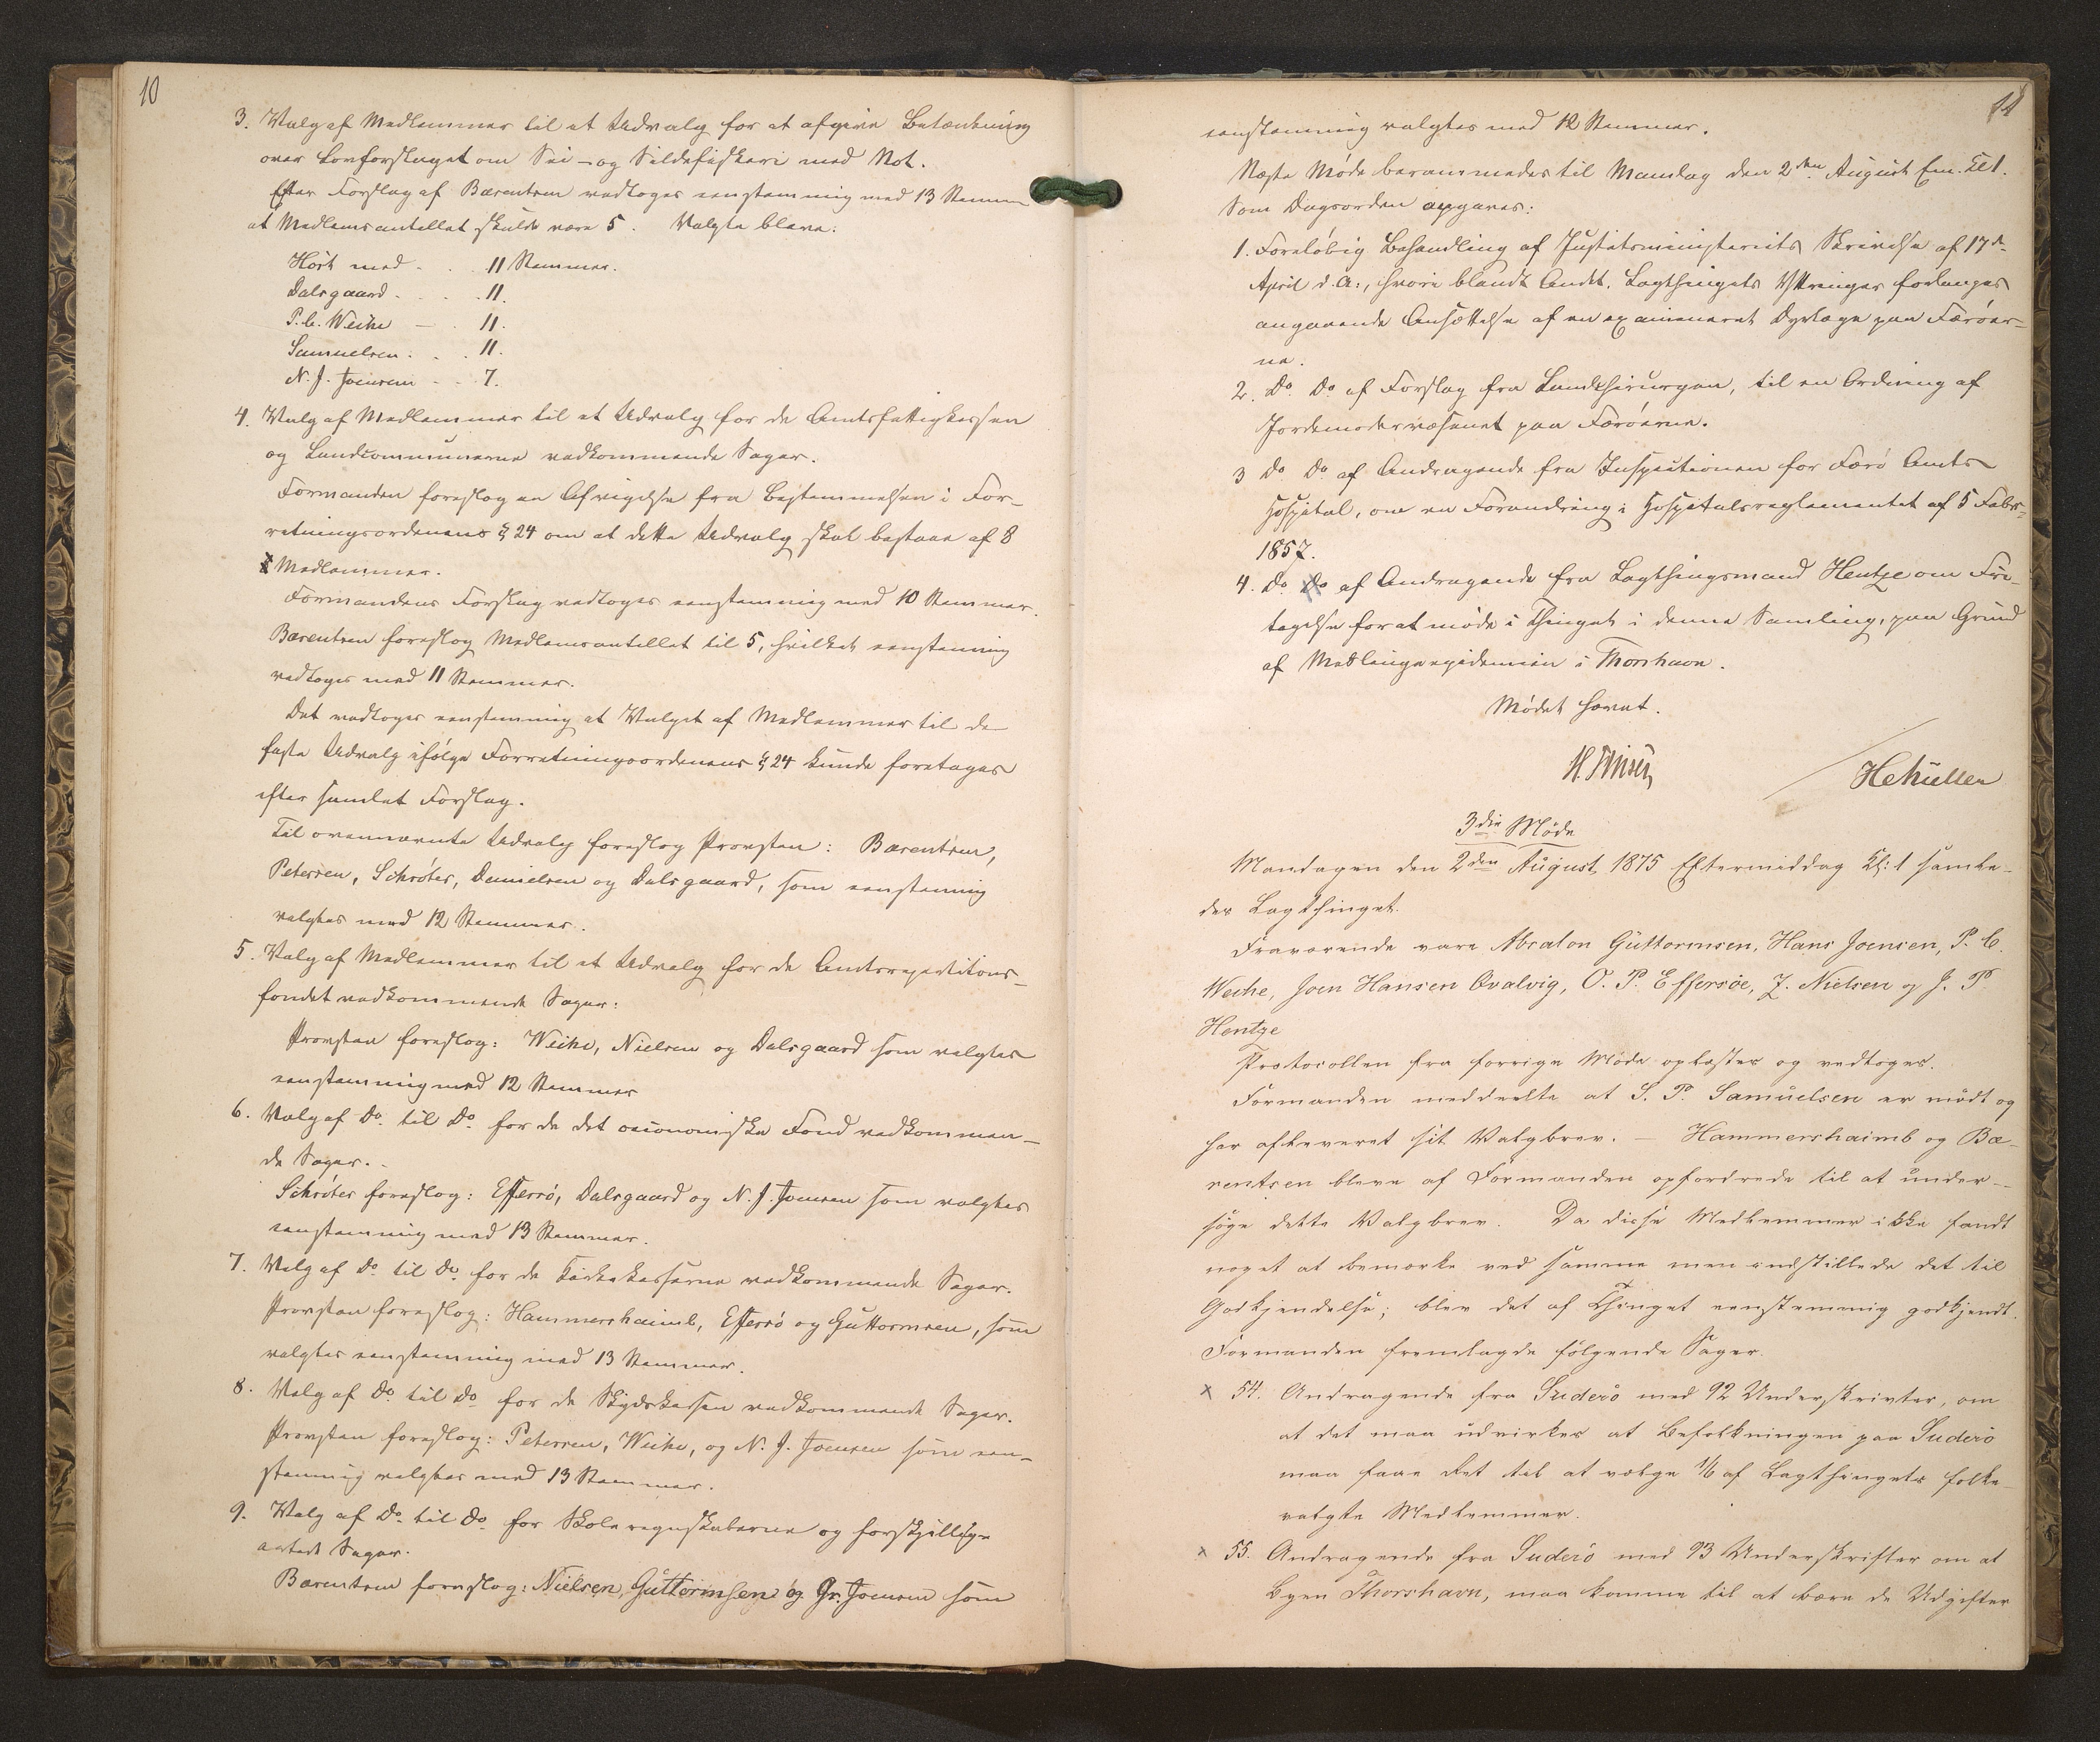 10
3. Valg af Medlemmer til et Udvalg for at afgive Betænkning
over Lovforslaget om Sei- og Sildefiskeri med Not.
Efter Forslag af Bærentsen vedtoges eenstemmig med 13 Stemmer
at Medlemsantallet skulde være 5. Valgte bleve:
Høst med . . 11 Stemmer.
Dalsgaard . . . 11.
P. C. Weihe — . 11.
Samuelsen . . . 11.
N. J. Joensen - . 7.
4. Valg af Medlemmer til et Udvalg for de Amtsfattigkassen
og Landcommunerne vedkommende Sager.
Formanden foreslog en Afvigelse fra Bestemmelsen i For-
retningsordenens § 24 om at dette Udvalg skal bestaae af 8
Medlemmer.
Formandens Forslag vedtoges eenstemmig med 10 Stemmer.
Bærentsen foreslog Medlemsantallet til 5, hvilket eenstemmig
vedtoges med 11 Stemmer.
Det vedtoges eenstemmig at Valget af Medlemmer til de
faste Udvalg ifølge Forretningsordenens § 24 kunde foretages
efter samlet Forslag.
Til ovennævnte Udvalg foreslog Provsten: Bærentsen,
Petersen, Schrøter, Danielsen og Dalsgaard, som eenstemmig
valgtes med 12 Stemmer.
5. Valg af Medlemmer til et Udvalg for de Amtsrepartitions-
fondet vedkommende Sager:
Provsten foreslog: Weihe, Nielsen og Dalsgaard som valgtes
eenstemmig med 12 Stemmer
6. Valg af Do. til Do. for de det oeconomiske Fond vedkommen-
de Sager. -
Schrøter foreslog: Effersø, Dalsgaard og N. J. Joensen som valgtes
eenstemmig med 13 Stemmer.
7. Valg af Do. til Do. for de Kirkekasserne vedkommende Sager.
Provsten foreslog: Hammershaimb, Effersø og Guttormsen, som
valgtes eenstemmig med 13 Stemmer.
8. Valg af Do. til Do. for de Skydskassen vedkommende Sager.
Provsten foreslog: Petersen, Weihe, og N. J. Joensen som een-
stemmig valgtes med 13 Stemmer.
9. Valg af Do. til Do. for Skoleregnskaberne og forskjellige
artede Sager.
Bærentsen foreslog: Nielsen, Guttormsen og Gr. Joensen som
11
eenstemmig valgtes med 12 Stemmer.
Næste Møde berammedes til Mandag den 2den August Em. Kl 1.
Som Dagsorden opgaves:
1. Foreløbig Behandling af Justitsministeriets Skrivelse af 17de
April d. A., hvori blandt Andet, Lagthingets Yttringer forlanges
angaaende Ansættelse af en examineret Dyrlæge paa Færøer-
ne.
2. Do. Do. af Forslag fra Landchirurgen, til en Ordning af
Jordemodervæsenet paa Færøerne.
3 Do Do. af Andragende fra Inspectionen for Færø Amts
Hospital, om en Forandring i Hospitalsreglementet af 5 Febr.
1857.
4. Do. Do af Andragende fra Lagthingsmand Hentze om Fri-
tagelse for at møde i Thinget i denne Samling, paa Grund
af Mæslingeepidemien i Thorshavn.
Mødet hævet.
H. Finsen
HCMüller
3die Møde
Mandagen den 2den August 1875 Eftermiddag Kl: 1 samle-
des Lagthinget.
Fraværende vare Absalon Guttormsen, Hans Joensen, P. C.
Weihe, Joen Hansen Qvalvig, O. P. Effersöe, Z. Nielsen og J. P
Hentze
Protocollen fra forrige Møde oplæstes og vedtoges.
Formanden meddeelte at S. P. Samuelsen er mødt og
har afleveret sit Valgbrev. — Hammershaimb og Bæ-
rentsen bleve af Formanden opfordrede til at under-
søge dette Valgbrev. Da disse Medlemmer ikke fandt
noget at bemærke ved samme men indstillede det til
Godkjendelse; blev det af Thinget eenstemmig godkjendt.
Formanden fremlagde følgende Sager.
x 54. Andragende fra Suderö med 92 Underskrivter, om
at det maa udvirkes at Befolkningen paa Suderö
maa faae Ret til at vælge 1/6 af Lagthingets folke-
valgte Medlemmer.
x 55. Andragende fra Suderö med 93 Underskrifter om at
Byen Thorshavn, maa komme til at bære de Udgifter